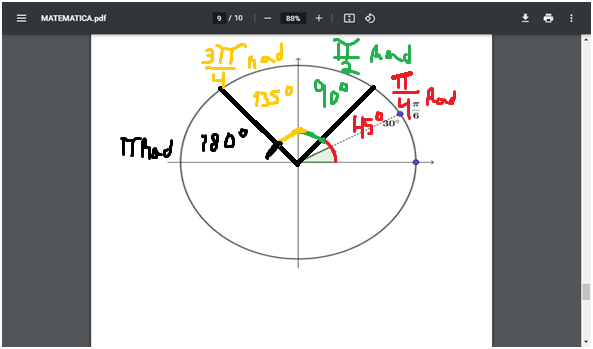 MATEMATICA.pdf
9 / 10
88%
3π/4 rad
π/2 rad
135°
90°
π/4 rad
π/6
45°
30°
π rad
180°